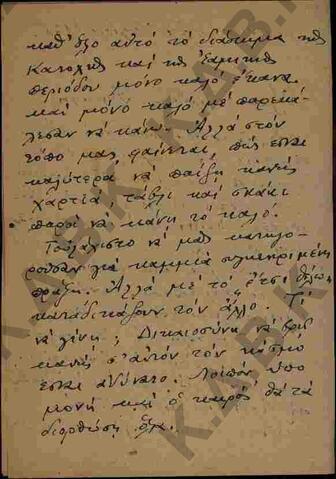 καθ' όλο αυτό το διάστημα της
Κατοχής και της Εαμικής
περίοδου μόνο καλό έκανα
και μόνο καλό με παρεκά-
λεσαν να κάνω. Αλλά στον
τόπο μας, φαίνεται, πως είναι
καλύτερα να παίζη κανείς
χαρτιά τάβλι και σκάκι
παρά να κάνη το καλό.
Τουλάχιστο να μας κατηγο-
ρούσαν για καμμιά συγκεκριμένη
πράξη. Αλλά με το „έτσι θέλω"
καταδικάζουν τον άλλο. Τι
να γίνη; Δικαιοσύνη να βρη
κανείς σ' αυτόν τον κόσμο
είναι αδύνατο. Λοιπόν υπο
μονή και ο καιρός θα τα
διορθώση όλα.